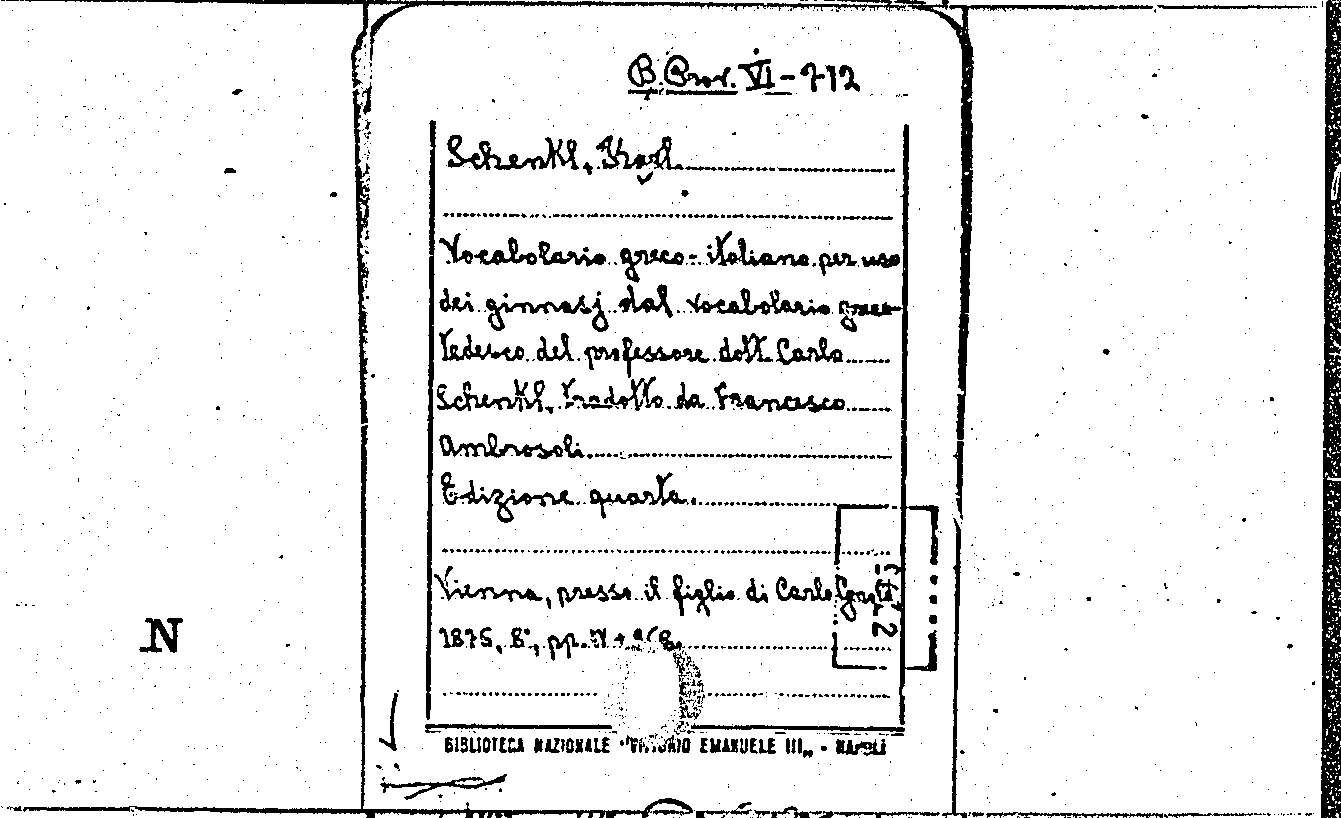 B. Prov. VI-712
Schenkl, Karl.
Vocabolario greco-italiano per uso
dei ginnasj dal vocabolario greco-
tedesco del professore dott. Carlo
Schenkl. Tradotto da Francesco
Ambrosoli.
Edizione quarta.
Vienna, presso il figlio di Carlo
1875, 8°, pp.
N
BIBLIOTECA NAZIONALE "VITTORIO EMANUELE III„ - NAPOLI